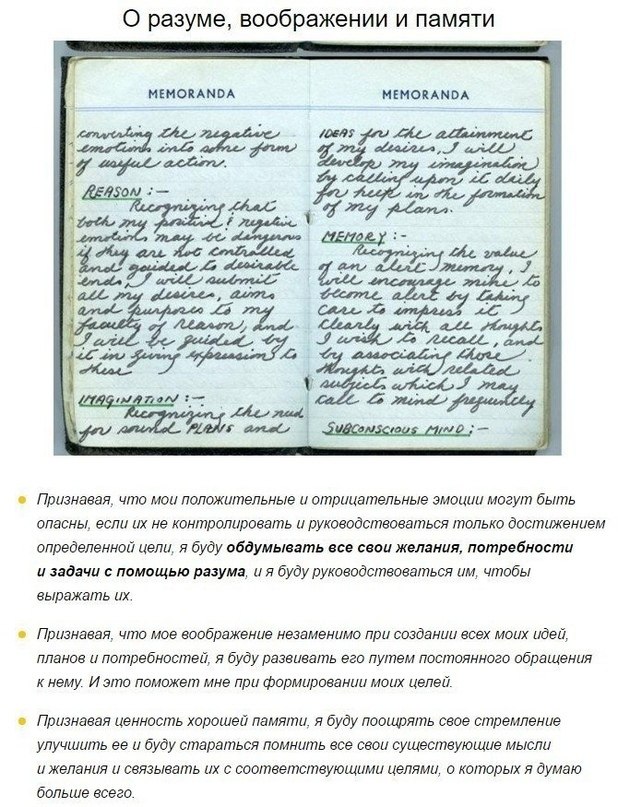 О разуме, воображении и памяти
MEMORANDA
converting the negative
emotions into some form
of useful action.
REASON :-
Recognizing that
both my positive & negative
emotions may be dangerous
if they are not controlled
and guided to desirable
ends, I will submit
all my desires, aims
and purposes to my
faculty of reason, and
I will be guided by
it in giving expression to
these
IMAGINATION :-
Recognizing the need
for sound PLANS and
MEMORANDA
IDEAS for the attainment
of my desires, I will
develop my imagination
by calling upon it daily
for help in the formation
of my plans.
MEMORY :-
Recognizing the value
of an alert memory, I
will encourage mine to
become alert by taking
care to impress it
clearly with all thoughts
I wish to recall, and
by associating those
thoughts with related
subjects which I may
call to mind frequently
SUBCONSCIOUS MIND :-
Признавая, что мои положительные и отрицательные эмоции могут быть
опасны, если их не контролировать и руководствоваться только достижением
определенной цели, я буду обдумывать все свои желания, потребности
и задачи с помощью разума, и я буду руководствоваться им, чтобы
выражать их.
Признавая, что мое воображение незаменимо при создании всех моих идей,
планов и потребностей, я буду развивать его путем постоянного обращения
к нему. И это поможет мне при формировании моих целей.
Признавая ценность хорошей памяти, я буду поощрять свое стремление
улучшить ее и буду стараться помнить все свои существующие мысли
и желания и связывать их с соответствующими целями, о которых я думаю
больше всего.